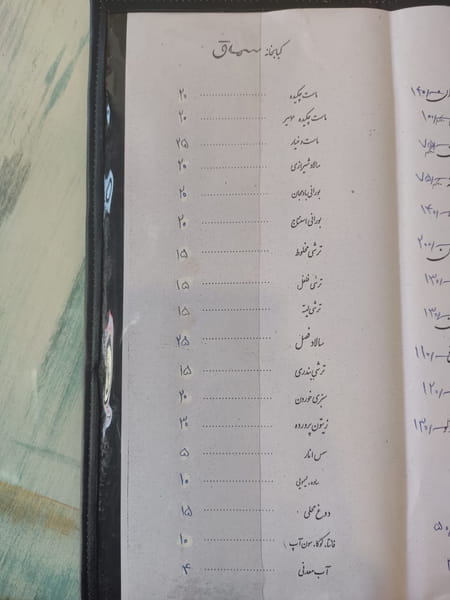 کبابخانه سماق
ماست چکیده ۲۰
ماست چکیده موسیر ۲۰
ماست و خیار ۲۵
سالاد شیرازی ۲۰
بورانی بادمجان ۲۰
بورانی اسفناج ۲۰
ترشی مخلوط ۱۵
ترشی فلفل ۱۵
ترشی لیته ۱۵
سالاد فصل ۲۵
ترشی بندری ۱۵
سبزی خوردن ۲۰
زیتون پرورده ۳۰
سس انار ۵
۱۰
دوغ محلی ۱۵
فانتا، کوکا، سون آپ ۱۰
آب معدنی ۴
۱۴۰/
۱۰۰/
۷۵/
۱۴۰/
۲۰۰/
۱۳۰/
۱۳۰/
۱۱۰/
۱۲۰/
۱۳۰/